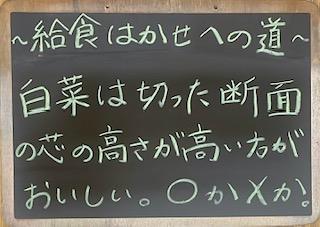 ~給食はかせへの道~
白菜は切った断面
の芯の高さが高い方が
おいしい。○か×か。